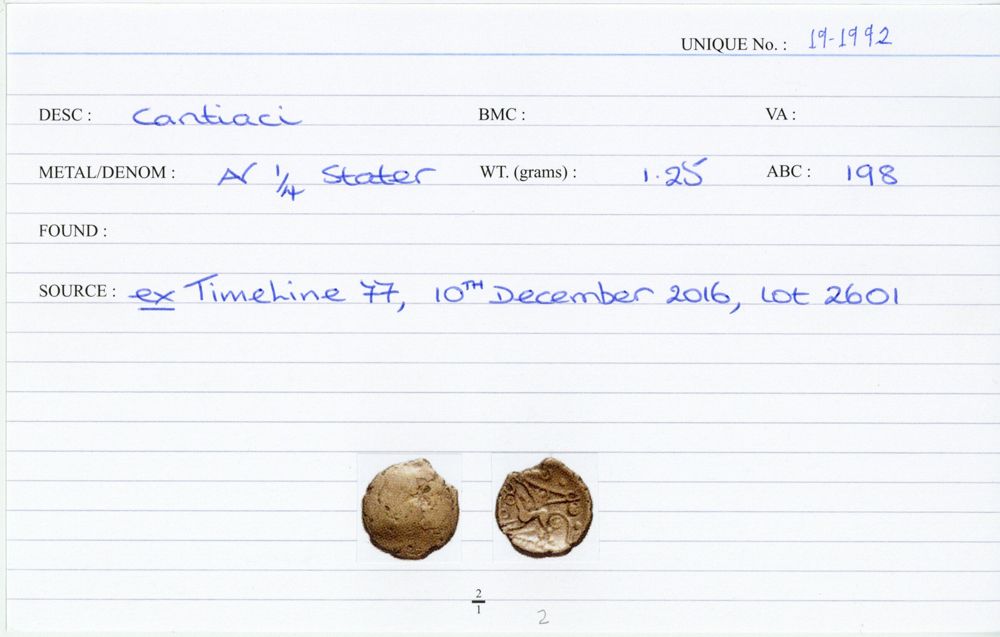 UNIQUE No. : 19-1992
DESC : Cantiaci BMC : VA :
METAL/DENOM : AV 1/4 Stater WT. (grams) : 1.25 ABC : 198
FOUND :
SOURCE : ex TimeLine 77, 10TH December 2016, Lot 2601
2/1
2